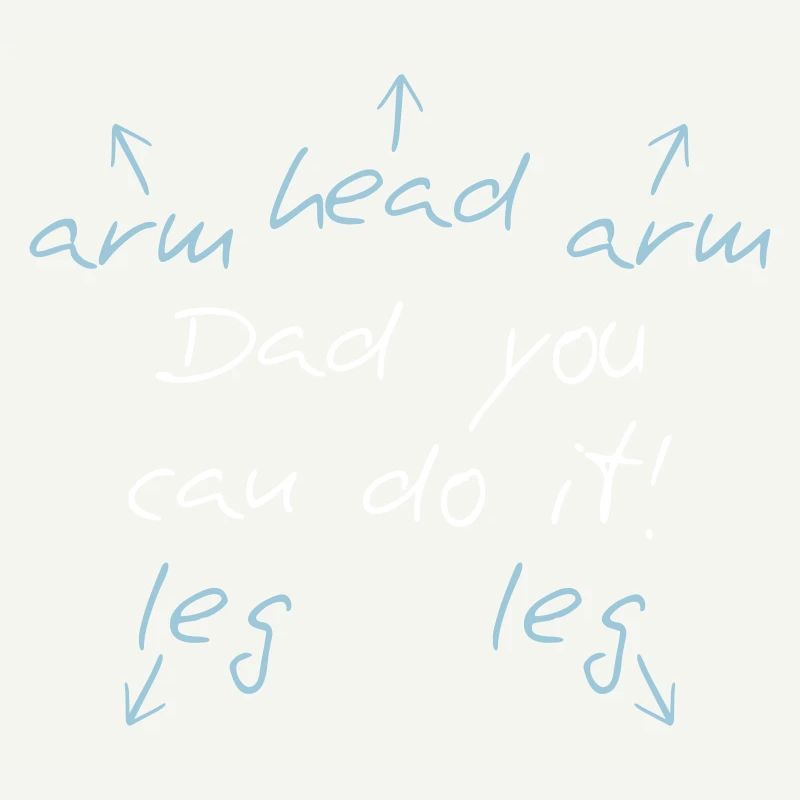 head
arm arm
Dad you
can do it!
leg leg